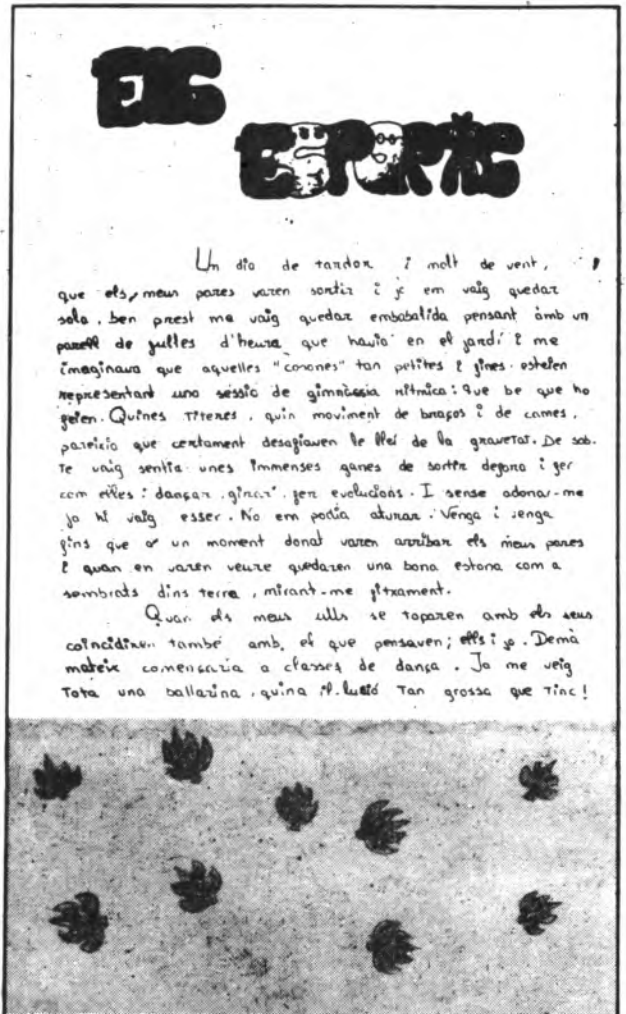 ELS
ESPERITS
Un dia de tardor i molt de vent,
que els meus pares varen sortir i jo em vaig quedar
sola, ben prest me vaig quedar embabalida pensant amb un
parell de fulles d'heura que havia en el jardí i me
imaginava que aquelles "cosones" tan petites i fines estaien
representant una sessio de gimnàssia rítmica: Que be que ho
feien. Quines Titeres, quin moviment de braços i de cames,
pareixia que certament desafiaven le llei de la gravetat. De sob-
te vaig sentia unes immenses ganes de sortir defora i fer
com elles: dançar, girar, fer evolucions. I sense adonar-me
ja hi vaig esser. No em podia aturar. Venga i venga
fins que a un moment donat varen arribar els meus pares
i quan en varen veure quedaren una bona estona com a
sembrats dins terra, mirant-me fitxament.
Quan els meus ulls se toparen amb els seus
coincidiren també amb el que pensaven; ells i jo. Demà
mateix començaria a classes de dança. Ja me veig
Tota una ballarina, quina il.lusió Tan grossa que Tinc!